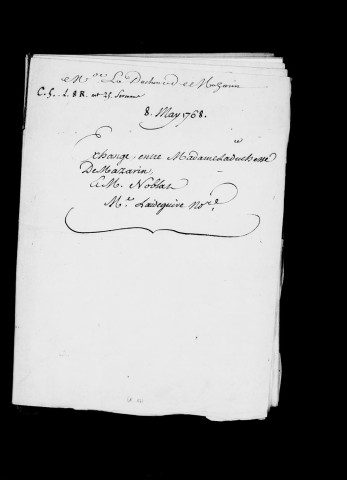 Mme La Duchesse de Mazarin
C. 5. L. 8 R. et
8. May 1768.
Echange entre Madame La duchesse
De Mazarin
& M. Noblat
Me. Ladeguive Nore.